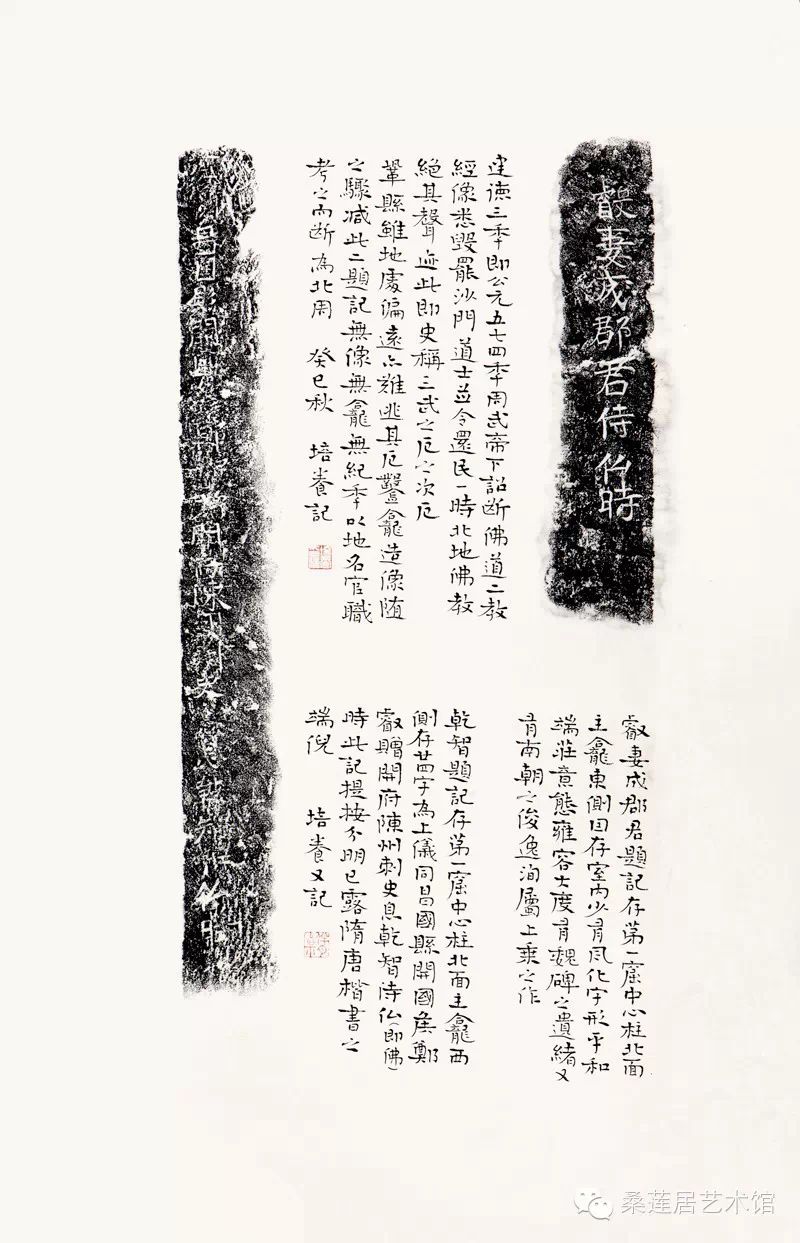 叡妻成郡君侍仏時
建德三季即公元五七四季周武帝下詔断佛道二教
經像悉毁罷沙門道士並令還民一時北地佛教
絕其聲迹此即史稱三武之厄之次厄
鞏縣雖地處偏遠亦難逃其厄鑿龕造像随
之驟减此二題記無像無龕無紀季以地名官職
考之而断為北周 癸巳秋 培養記
叡妻成郡君題記存第一窟中心柱北面
主龕東側因存室内少有風化字形平和
端莊意態雍容大度有魏碑之遺緒又
有南朝之俊逸洵屬上乘之作
乾智題記存第一窟中心柱北面主龕西
側存廿四字為上儀同昌國縣開國侯鄭
叡贈開府陳州刺史息乾智侍仏(即佛)
時此記提按分明已露隋唐楷書之
端倪 培養又記
昌國縣開國
開府陳州刺史
桑莲居艺术馆